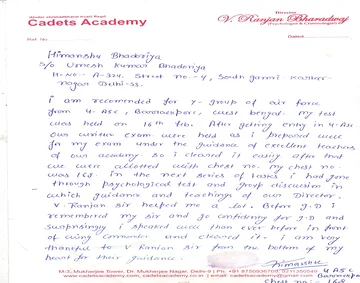 Cadets Academy
Director
V. Ranjan Bharadwaj
(Psychologist & Criminologist)
Ref. No.
Dated
Himanshu Bhadoriya
S/o Umesh Kumar Bhadoriya
H-No- A-324, Street no-4, South Gamri-
Nagar Delhi-53.
I am recommended for Y-group of air force
from 4-ASC, Barrackpore, west bengal. my test
was held on 16th Feb. After getting entry in 4-ASC
Our written exam were held as I prepared well
for my exam under the guidance of excellent teachers
of our academy. So i cleared it easily after that
we were allotted with chest no. my chest no.
was 168. In the next series of tasks i had gone
through psychological test and group discussion in
which guidance and teachings of our Director,
V. Ranjan sir helped me a lot. Before G.D I
remembered my sir and go confidently for G.D and
surprisingly i speaked well than ever before in front
of wing commander and cleared it. I am very
thankful to V Ranjan sir from the bottom of my
heart for their guidance.
Himanshu
4 ASC
Barrackpore
Chest no:- 168
M-3, Mukherjee Tower, Dr. Mukherjee Nagar, Delhi-9
www.cadetsacademy.com email: cadetsacademy@gmail.com